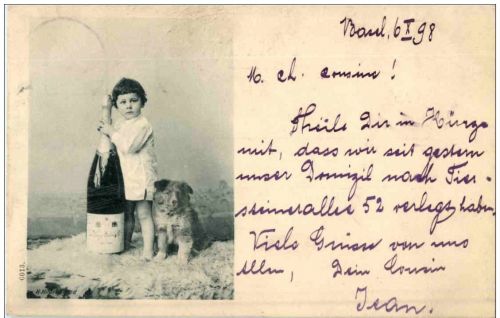 Basel, 6 X 98
M. ch. cousine!
Theile Dir in Kürze
mit, dass wir seit gestern
unser Domizil nach Tier-
steinerallee 52 verlegt haben.
Viele Grüsse von uns
Allen, Dein Cousin
Jean.